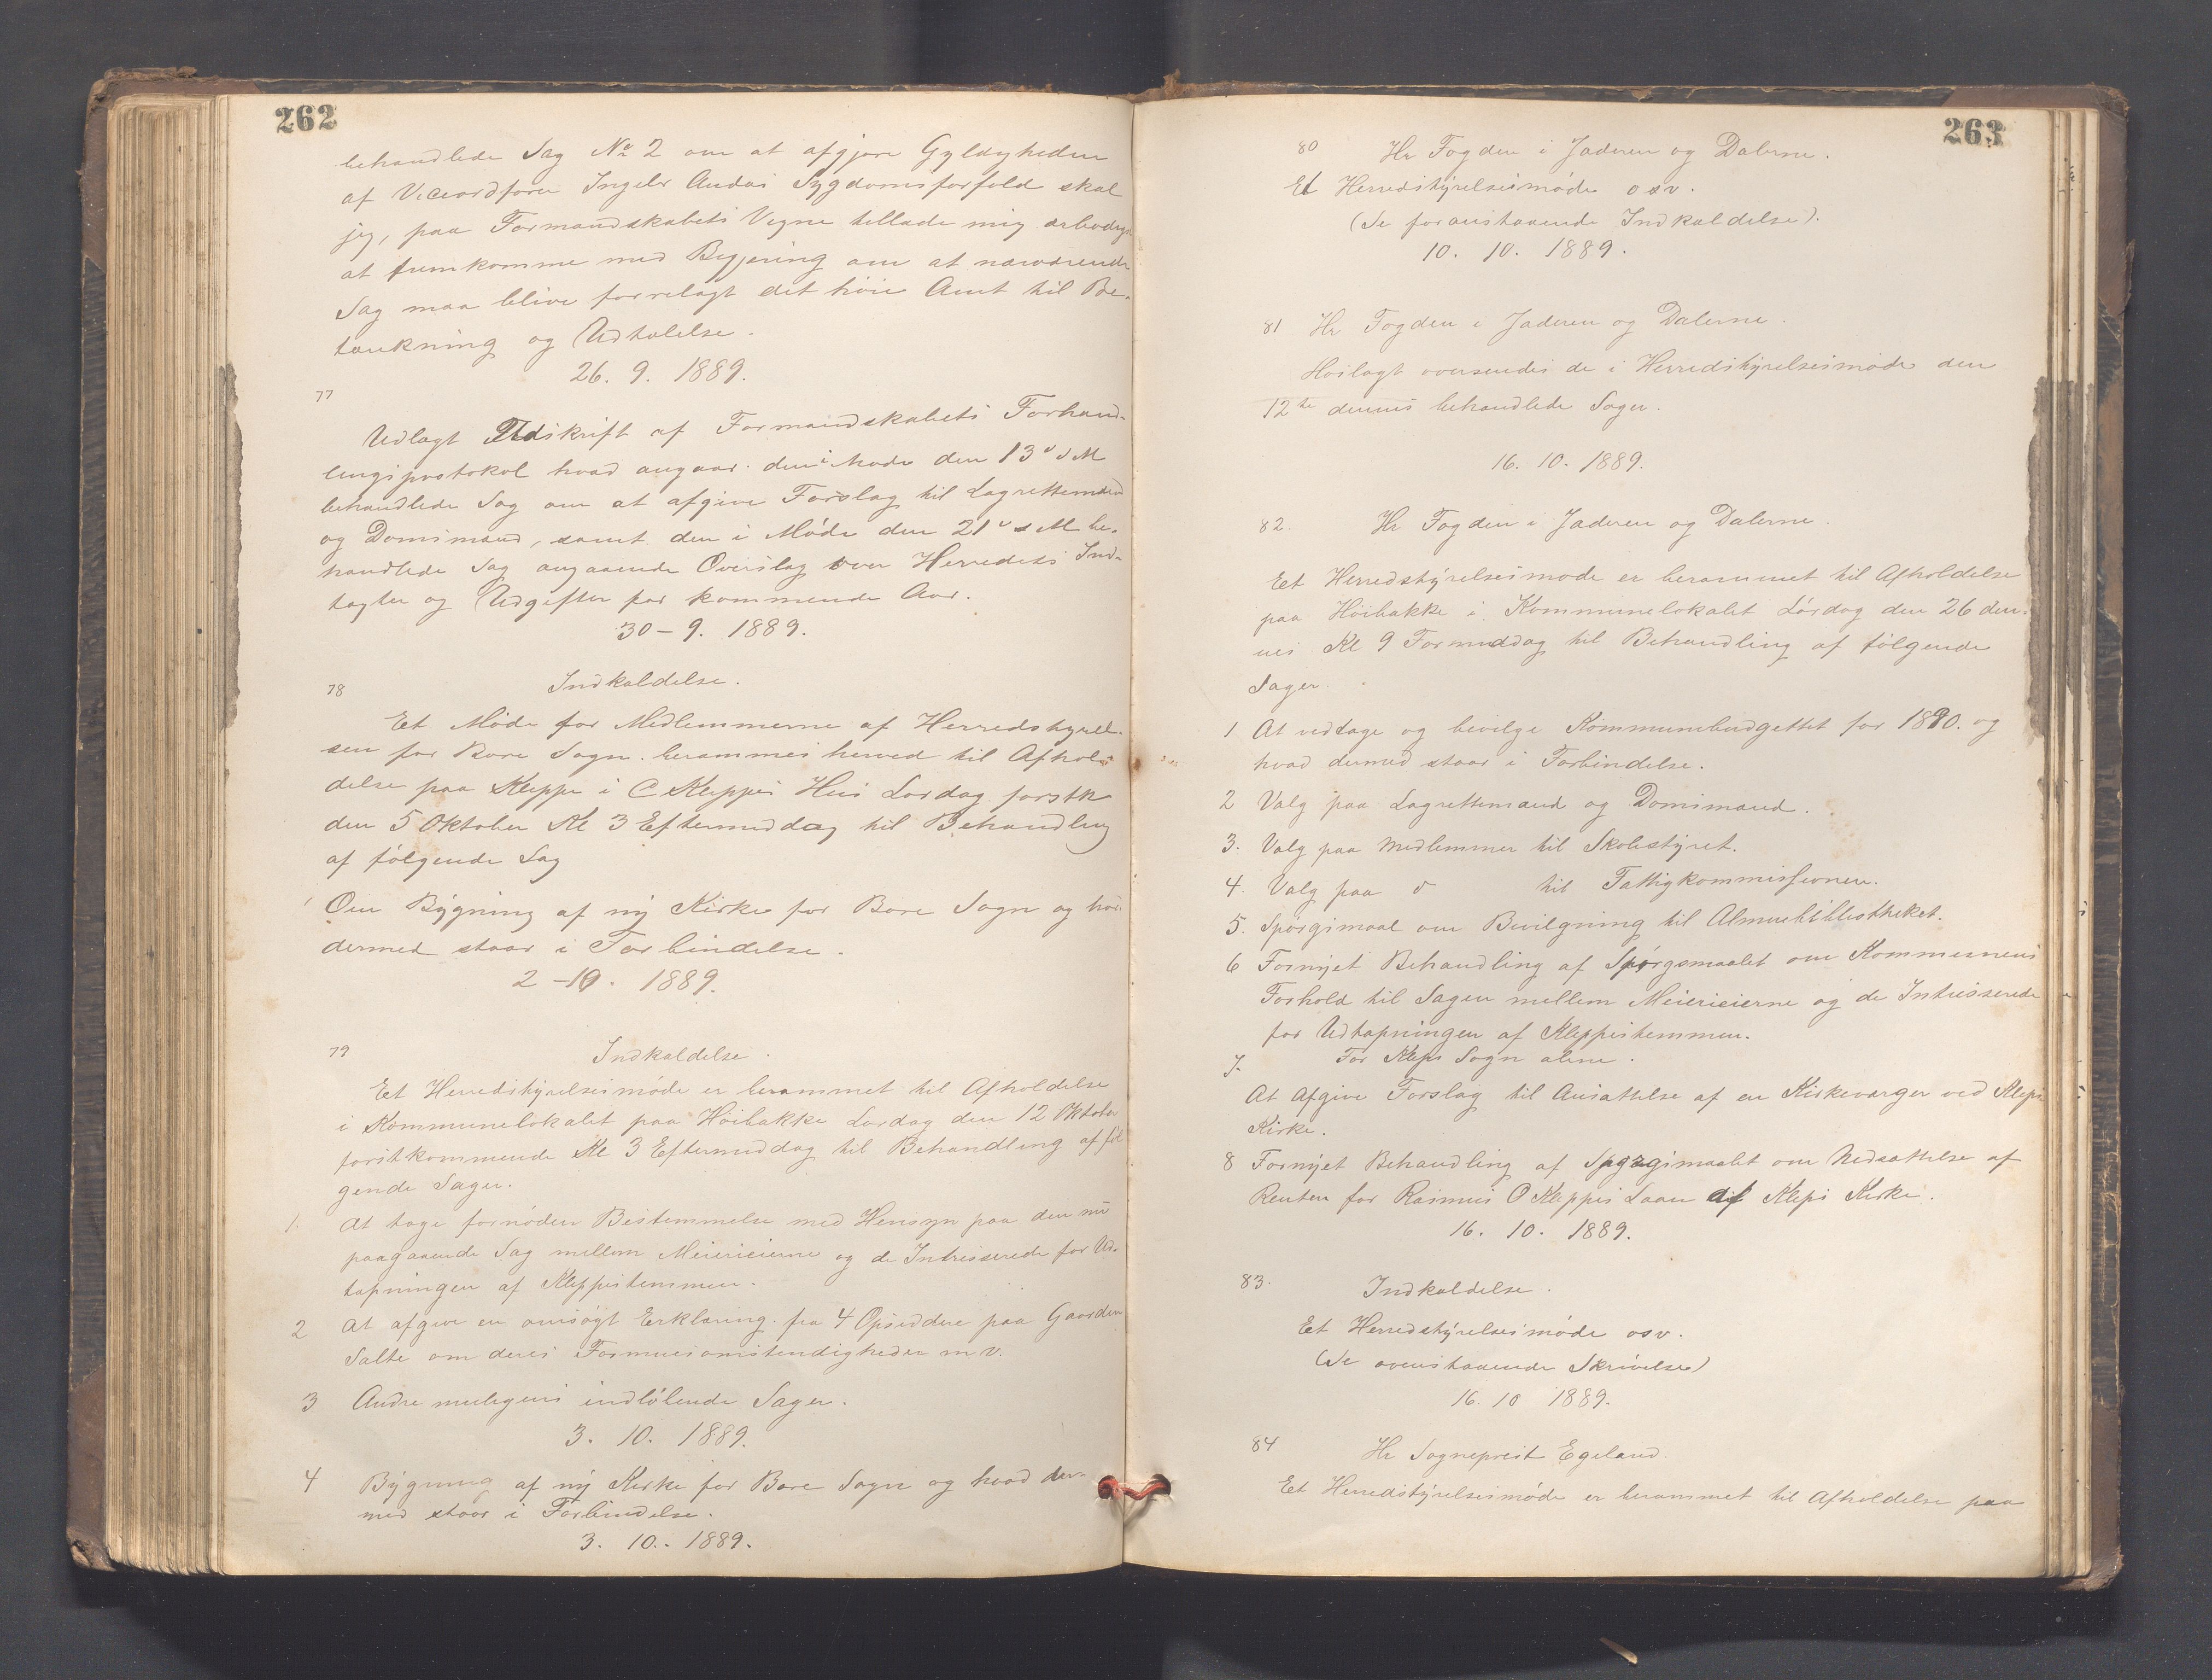 262
behandlede Sag No 2 om at afgjøre Gyldigheden
af Viceordfører Ingebr Andas Sygdomsforfald skal
jeg, paa Formandskabets Vegne tillade mig ærbødigst
at fremkomme med Begjæring om at nærværende
Sag maa blive forrelagt det höie Amt til Be-
tænkning og Udtalelse.
26. 9. 1889.
77
Udlagt Udskrift af Formandskabets Forhand-
lingsprotokol hvad angaar den i Møde den 13de d M
behandlede Sag om at afgive Forslag til Lagrettemænd
og Domsmænd, samt den i Møde den 21de d M be-
handlede Sag angaaende Overslag over Herredets Ind-
tægter og Udgifter for kommende Aar.
30-9. 1889.
78 Indkaldelse.
Et Møde for Medlemmerne af Herredstyrel-
sen for Bore Sogn berammes herved til Afhol-
delse paa Kleppe i C Kleppes Hus Lørdag førstk
den 5 Oktober Kl 3 Eftermiddag til Behandling
af følgende Sag
1 Om Bygning af ny Kirke for Bore Sogn og hvad
dermed staar i Forbindelse.
2-10. 1889.
79 Indkaldelse.
Et Herredstyrelsesmøde er berammet til Afholdelse
i Kommunelokalet paa Höibakke Lørdag den 12 Oktober
førstkommende Kl 3 Eftermiddag til Behandling af føl
gende Sager.
1. At tage fornøden Bestemmelse med Hensyn paa den nu
paagaaende Sag mellem Meierieierne og de Intresserede for Ud-
tapningen af Kleppestemmen.
2 At afgive en ansøgt Erklæring fra 4 Opsiddere paa Gaarden
Salte om deres Formuesomstendigheder m v.
3 Andre muligens indløbende Sager.
3. 10. 1889.
4 Bygning af ny Kirke for Bore Sogn og hvad der-
med staar i Forbindelse.
3. 10. 1889.
263
80 Hr Fogden i Jæderen og Dalerne.
Et Herredstyrelsesmøde osv.
(Se foranstaaende Indkaldelse).
10. 10. 1889.
81 Hr Fogden i Jæderen og Dalerne.
Hoslagt oversendes de i Herredstyrelsesmøde den
12te dennes behandlede Sager.
16. 10. 1889.
82. Hr Fogden i Jæderen og Dalerne.
Eet Herredstyrelsesmøde er berammet til Afholdelse
paa Höibakke i Kommunelokalet Lørdag den 26 den-
nes Kl 9 Formiddag til Behandling af følgende
Sager.
1 At vedtage og bevilge Kommunebudgettet for 1890. og
hvad dermed staar i Forbindelse.
2 Valg paa Lagrettemænd og Domsmænd.
3. Valg paa Medlemmer til Skolestyret.
4. Valg paa do til Fattigkommissionen.
5. Spørgsmaal om Bevilgning til Almuebibliotheket.
6 Fornyet Behandling af Spørgsmaalet om Kommunens
Forhold til Sagen mellem Meierieierne og de Intresserede
for Udtapningen af Kleppestemmen.
7. For Kleps Sogn alene.
At Afgive Forslag til Ansættelse af en Kirkeværger ved Kleps
Kirke.
8 Fornyet Behandling af Spørgsmaalet om Nedsættelse af
Renten for Rasmus O Kleppes Laan af Kleps Kirke.
16. 10. 1889.
83. Indkaldelse.
Eet Herredstyrelsesmøde osv.
(Se ovenstaaende Skrivelse)
16. 10 1889.
84 Hr Sogneprest Egeland.
Et Herredstyrelsesmøde er berammet til Afholdelse paa